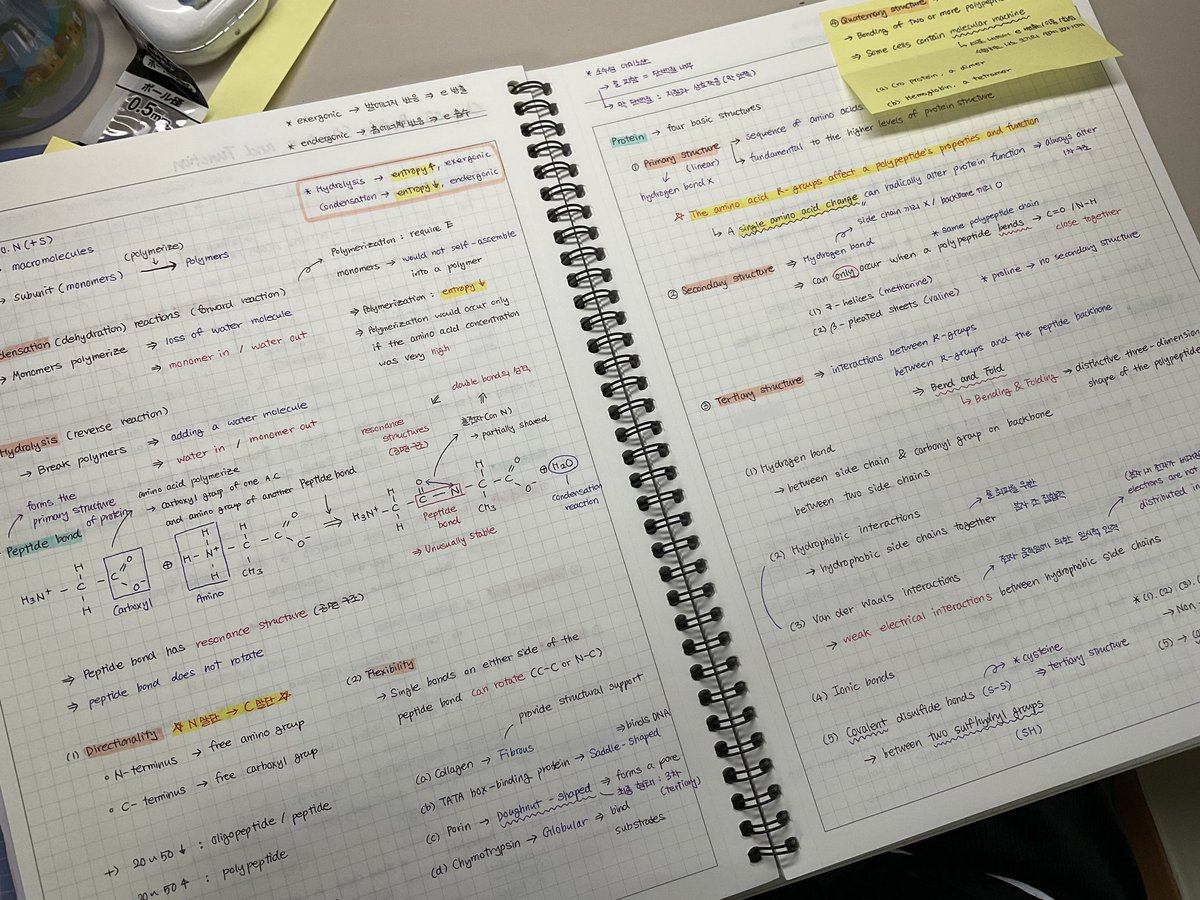 ボール径
0.5mm
* exergonic → 발에너지 반응 → e 방출
* endergonic → 흡에너지 반응 → e 흡수
* Hydrolysis → entropy↑, exergonic
Condensation → entropy↓, endergonic
O. N (+S)
macromolecules
(polymerize)
→ subunit (monomers) → Polymers
Polymerization : require E
monomers → would not self-assemble
into a polymer
⇒ Polymerization : entropy ↓
⇒ Polymerization would occur only
if the amino acid concentration
was very high
densation (dehydration) reactions (forward reaction)
→ Monomers polymerize ⇒ loss of water molecule
⇒ monomer in / water out
Hydrolysis (reverse reaction)
→ Break polymers ⇒ adding a water molecule
⇒ water in / monomer out
forms the
primary structure
of protein
Peptide bond
amino acid polymerize
→ carboxyl group of one A.C
and amino group of another
Peptide bond
resonance
structures
(공명구조)
double bond의 성격
홀전자(on N)
→ partially shared
H₃N⁺ - C - C O O⁻
H H
Carboxyl
⊕
H - N⁺ - C - C O O⁻
H H H CH₃
Amino
⇒
H₃N⁺ - C - C - N - C - C O O⁻ ⊕ H₂O
H H O H CH₃
Peptide
bond
condensation
reaction
⇒ Unusually stable
⇒ Peptide bond has resonance structure (공명구조)
⇒ peptide bond does not rotate
(1) Directionality ☆ N 말단 → C 말단 ☆
○ N-terminus → free amino group
○ C-terminus → free carboxyl group
+) 20~50 ↓ : oligopeptide / peptide
20~50 ↑ : polypeptide
(2) Flexibility
→ Single bonds on either side of the
peptide bond can rotate (C-C or N-C)
provide structural support
(a) Collagen → Fibrous
⇒ binds DNA
(b) TATA box-binding protein → Saddle-shaped
(c) Porin → Doughnut-shaped ⇒ forms a pore
최종 형태 : 3차
(tertiary)
(d) Chymotrypsin → Globular ⇒ bind
substrates
* 소수성 아미노산
→ 물 피함 = 단백질 내부
④ Quaternary structure
→ Bending of two or more polypepti
⇒ Some cells contain molecular machine
(a) Cro protein, a dimer
(b) Hemoglobin, a tetramer
Protein → four basic structures
① Primary structure → sequence of amino acids
(linear)
fundamental to the higher levels of protein structure
hydrogen bond X
☆ The amino acid R-groups affect a polypeptide's properties and function
↳ A single amino acid change can radically alter protein function → always alter
1차 구조
side chain 끼리 X / backbone 끼리 O
② Secondary structure ⇒ Hydrogen bond
* same polypeptide chain
⇒ can only occur when a polypeptide bends → C=O / N-H
close together
(1) α-helices (methionine)
* proline → no secondary structure
(2) β-pleated sheets (valine)
③ Tertiary structure ⇒ interactions between R-groups
between R-groups and the peptide backbone
⇒ Bend and Fold
↳ Bending & Folding → distinctive three-dimension
shape of the polypeptide
(1) Hydrogen bond
→ between side chain & carbonyl group on backbone
between two side chains
(2) Hydrophobic interactions
→ hydrophobic side chains together
(3) Van der Waals interactions
→ weak electrical interactions between hydrophobic side chains
electrons are not
distributed in
* (1). (2). (3).
→ Non
(4) Ionic bonds
* cysteine
(5) Covalent disulfide bonds (S-S) ⇒ tertiary structure
→ between two sulfhydryl groups
(SH)
(5) →